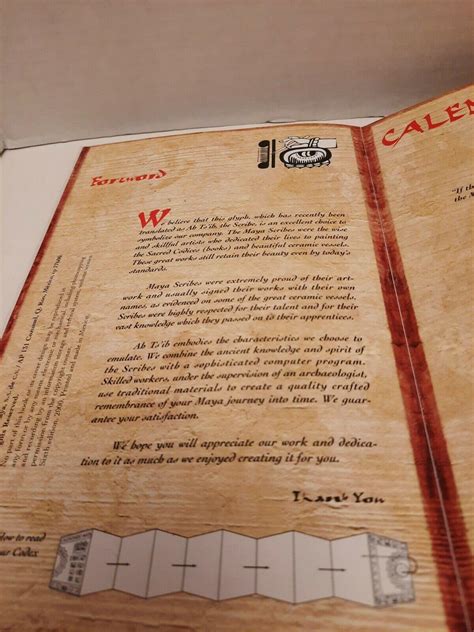 Forword
CALEN
We believe that this glyph, which has recently been
translated as Ah Ts'ib, the Scribe, is an excellent choice to
symbolize our company. The Maya Scribes were the wise
and skillful artists who dedicated their lives to painting
the Sacred Codices (books) and beautiful ceramic vessels.
These great works still retain their beauty even by today's
standards.
Maya Scribes were extremely proud of their art-
work and usually signed their works with their own
names, as evidenced on some of the great ceramic vessels.
Scribes were highly respected for their talent and for their
vast knowledge which they passed on to their apprentices.
Ah Ts'ib embodies the characteristics we choose to
emulate. We combine the ancient knowledge and spirit of
the Scribes with a sophisticated computer program.
Skilled workers, under the supervision of an archaeologist,
use traditional materials to create a quality crafted
remembrance of your Maya journey into time. We gua-
rantee your satisfaction.
We hope you will appreciate our work and dedica-
tion to it as much as we enjoyed creating it for you.
Thank You
to read
Codex
"If th
the